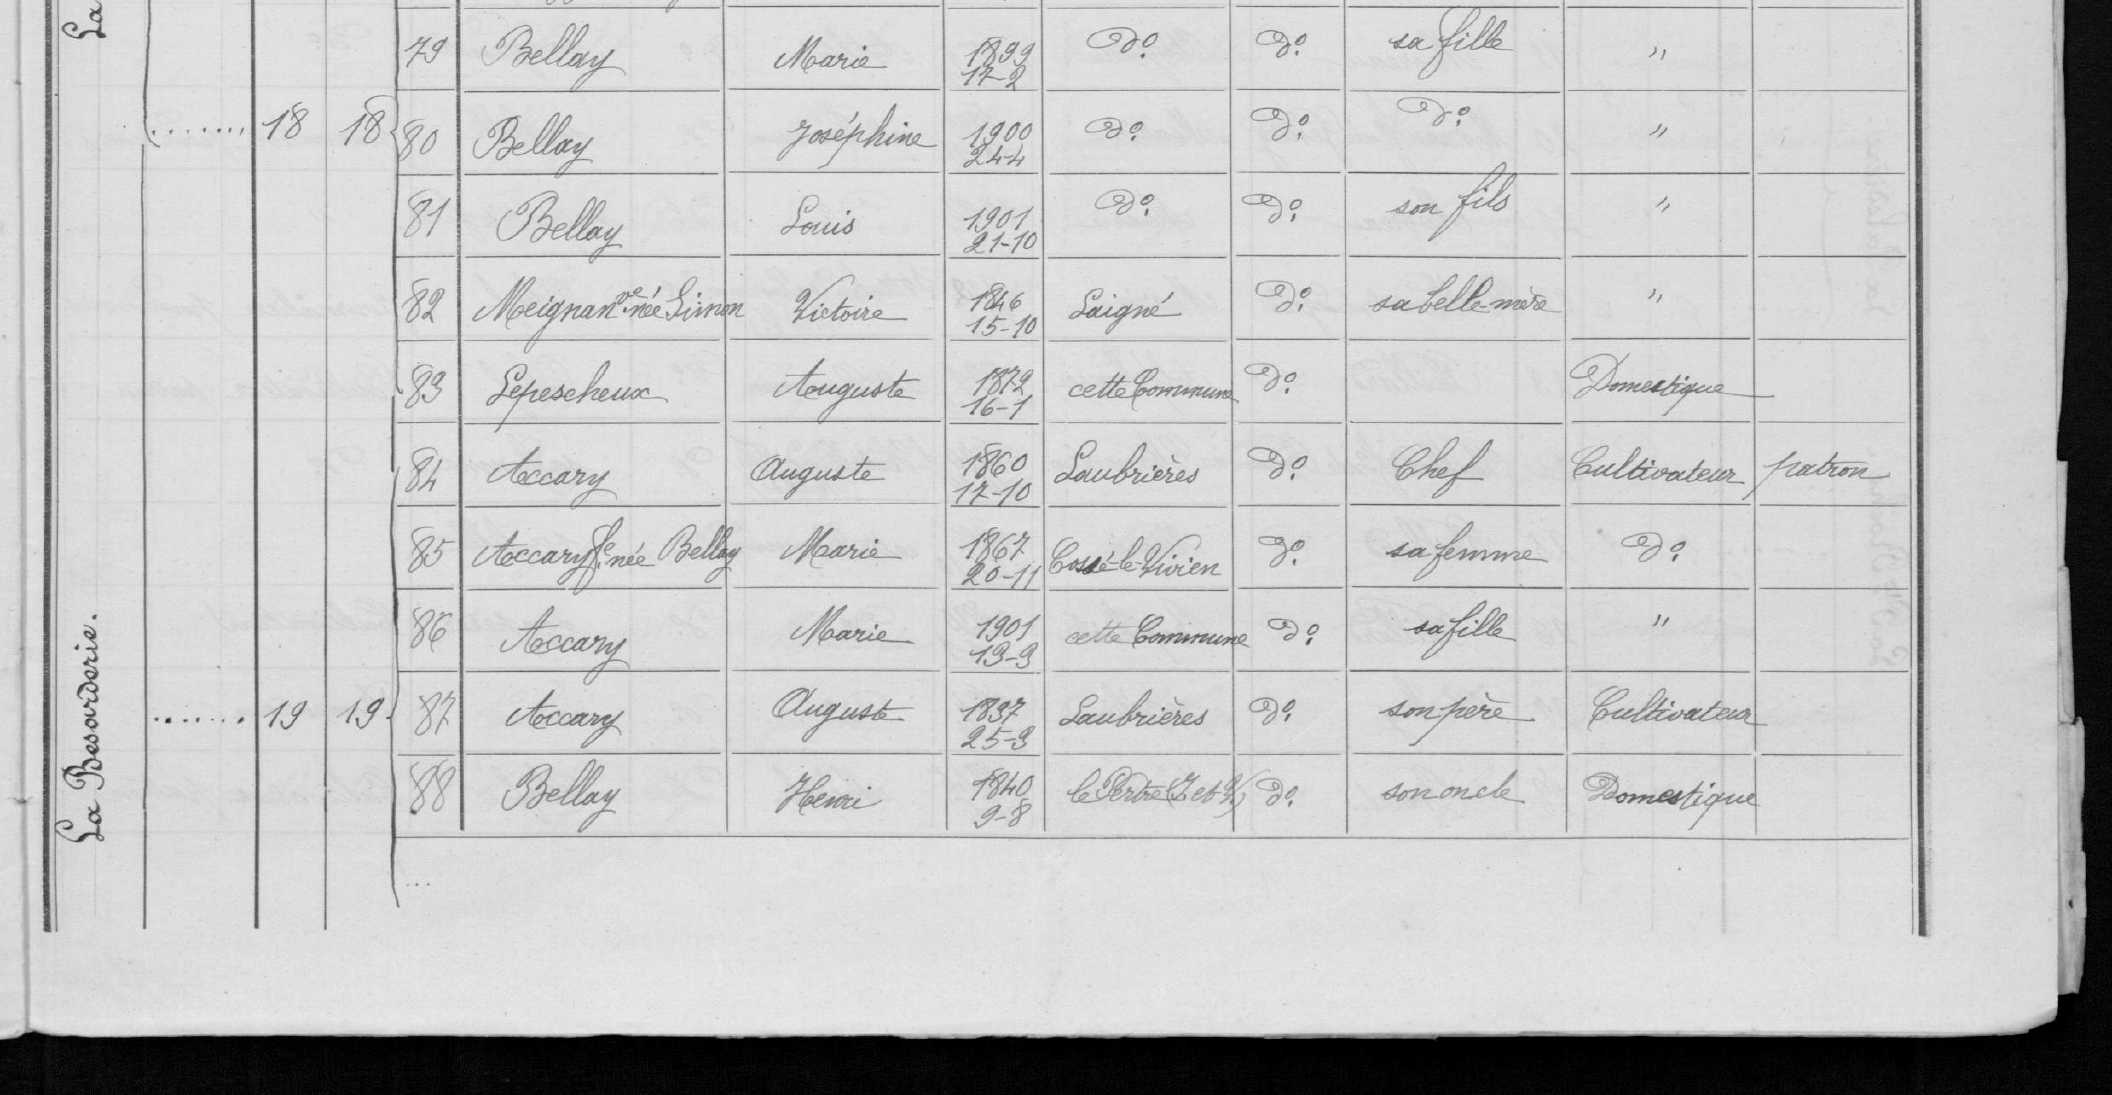 79 Bellay Marie 1899 17-2 do. do. sa fille "
18 18 80 Bellay Joséphine 1900 24-4 do. do. do. "
81 Bellay Louis 1901 21-10 do. do. son fils "
82 Meignan ve née Simon Victoire 1846 15-10 Laigné do. sa belle-mère "
83 Lepescheux Auguste 1872 16-1 cette Commune do. Domestique
84 Accary Auguste 1860 17-10 Laubrières do. Chef Cultivateur patron
85 Accary fe née Bellay Marie 1867 20-11 Cossé-le-Vivien do. sa femme do.
86 Accary Marie 1901 13-3 cette Commune do. sa fille "
La Besarderie.
19 19 87 Accary Auguste 1837 25-3 Laubrières do. son père Cultivateur
88 Bellay Henri 1840 9-8 le Pertre (I et V) do. son oncle Domestique
...
La